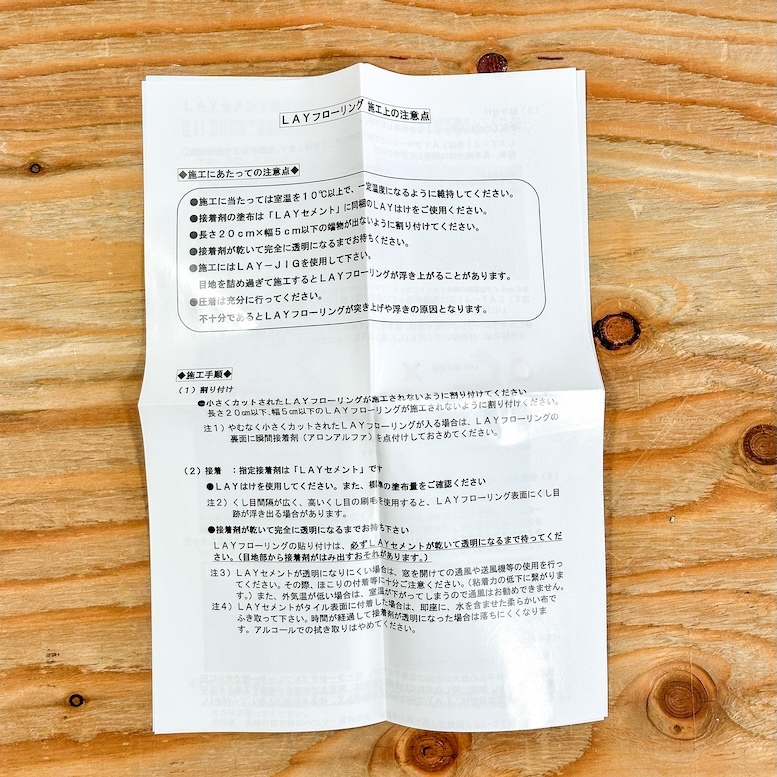 LAYフローリング 施工上の注意点
◆施工にあたっての注意点◆
●施工に当たっては室温を10℃以上で、一定温度になるように維持してください。
●接着剤の塗布は「LAYセメント」に同梱のLAYはけをご使用ください。
●長さ20cm×幅5cm以下の端物が出ないように割り付けてください。
●接着剤が乾いて完全に透明になるまでお待ちください。
●施工にはLAY－JIGを使用して下さい。
目地を詰め過ぎて施工するとLAYフローリングが浮き上がることがあります。
●圧着は充分に行ってください。
不十分であるとLAYフローリングが突き上げや浮きの原因となります。
◆施工手順◆
(1) 割り付け
●小さくカットされたLAYフローリングが施工されないように割り付けてください
長さ20cm以下、幅5cm以下のLAYフローリングが施工されないように割り付けください。
注1) やむなく小さくカットされたLAYフローリングが入る場合は、LAYフローリングの
裏面に瞬間接着剤（アロンアルファ）を点付けしておさめてください。
(2) 接着 ：指定接着剤は「LAYセメント」です
●LAYはけを使用してください。また、標準の塗布量をご確認ください
注2) くし目間隔が広く、高いくし目の刷毛を使用すると、LAYフローリング表面にくし目
跡が浮き出る場合があります。
●接着剤が乾いて完全に透明になるまでお待ち下さい
LAYフローリングの貼り付けは、必ずLAYセメントが乾いて透明になるまで待ってくだ
さい。（目地部から接着剤がはみ出すおそれがあります。）
注3) LAYセメントが透明になりにくい場合は、窓を開けての通風や送風機等の使用を行っ
てください。その際、ほこりの付着等に十分ご注意ください。（粘着力の低下に繋がりま
す。）また、外気温が低い場合は、室温が下がってしまうので通風はお勧めできません。
注4) LAYセメントがタイル表面に付着した場合は、即座に、水を含ませた柔らかい布で
ふき取って下さい。時間が経過して接着剤が透明になった場合は落ちにくくなりま
す。アルコールでの拭き取りはやめてください。